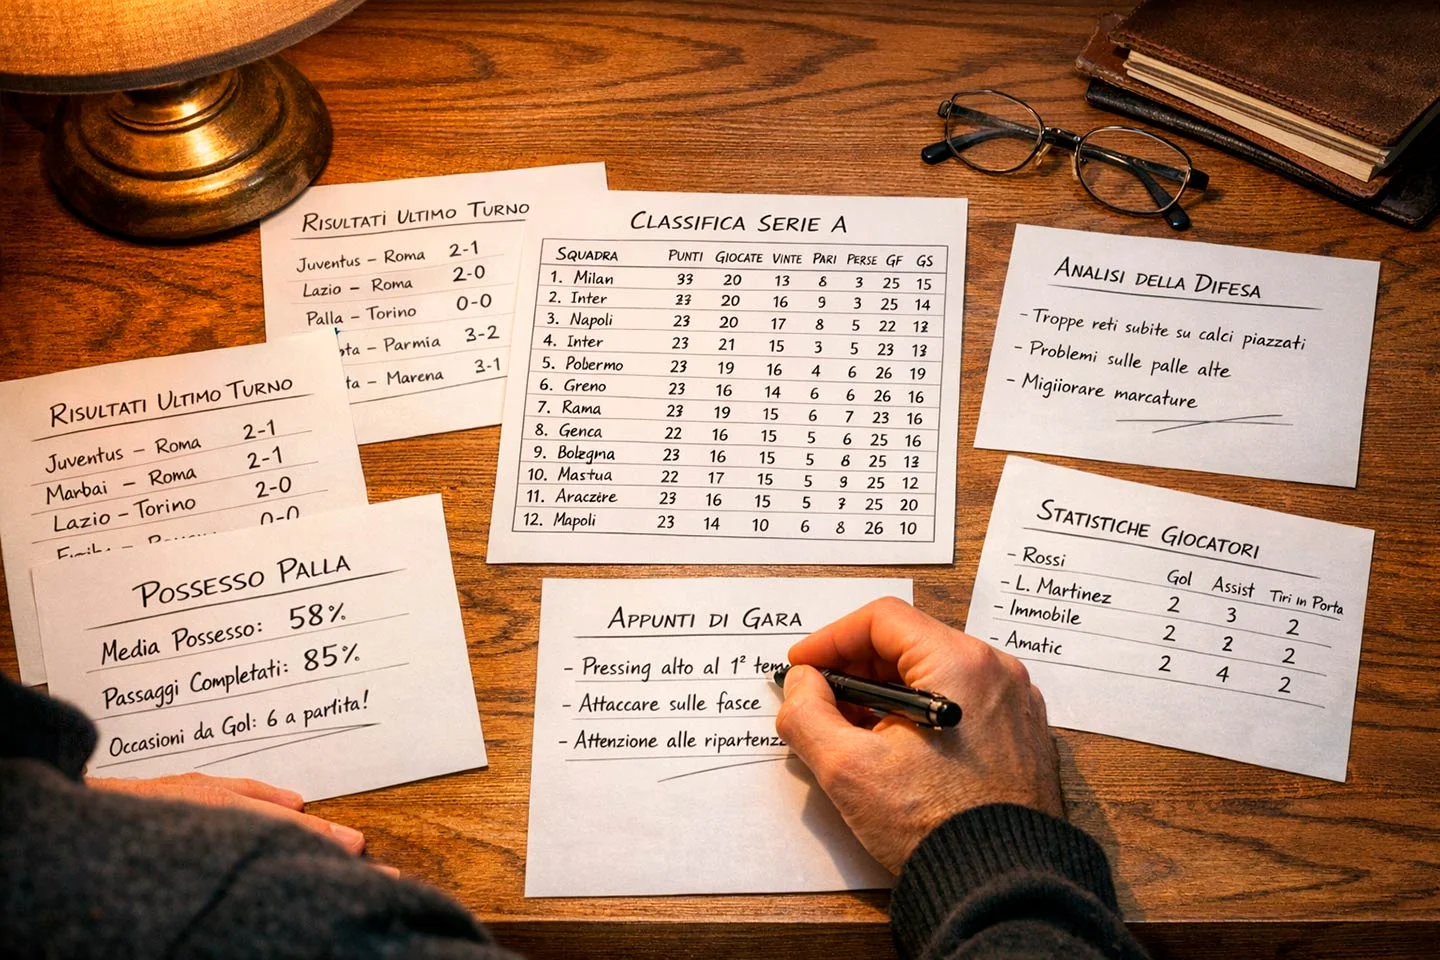 RISULTATI ULTIMO TURNO
Juventus – Roma 2-1
Lazio – Roma 2-0
Palla – Torino 0-0
ta – Parmia 3-2
ta – Marena 3-1
RISULTATI ULTIMO TURNO
Juventus – Roma 2-1
Marbai – Roma 2-1
Lazio – Torino 2-0
0-0
POSSESSO PALLA
Media Possesso: 58%
Passaggi Completati: 85%
Occasioni da Gol: 6 a partita!
CLASSIFICA SERIE A
SQUADRA PUNTI GIOCATE VINTE PARI PERSE GF GS
1. Milan 93 20 13 8 3 25 15
2. Inter 23 20 16 9 3 25 14
3. Napoli 23 20 17 8 5 22 12
4. Inter 23 21 15 3 5 23 13
5. Pobermo 23 19 16 4 6 26 19
6. Greno 23 16 14 6 6 26 16
7. Rama 23 19 15 6 7 23 16
8. Genca 22 16 15 5 6 25 16
9. Bolegna 23 16 15 5 8 25 13
10. Mastua 22 17 15 5 9 25 12
11. Araczere 23 16 15 5 7 25 20
12. Mapoli 23 14 10 6 8 26 10
APPUNTI DI GARA
– Pressing alto al 1² tem
– Attaccare sulle fasce
– Attenzione alle ripartenz
ANALISI DELLA DIFESA
– Troppe reti subite su calci piazzati
– Problemi sulle palle alte
– Migiiorare marcature
STATISTICHE GIOCATORI
Gol Assist Tiri in Porta
– Rossi
– L. Martinez 2 3 2
– Immobile 2 2 2
– Amatic 2 4 2